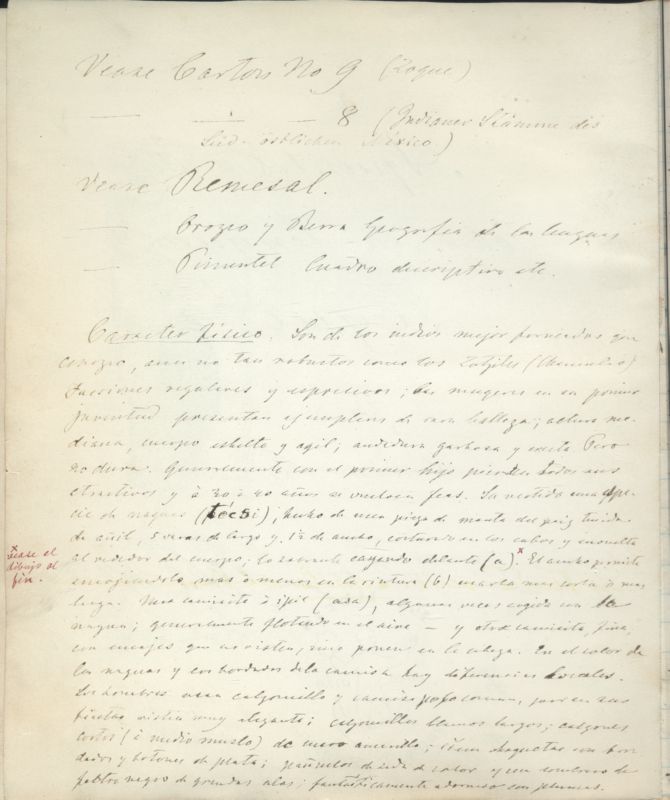 Vease Carton No 9 (Zoque)
— — — 8 (Indianer Stämme des
Süd-östlichen México)
Vease Remesal.
— Orozco y Berra Geografia de las lenguas
— Pimentel Cuadro descriptivo etc.
Caracter físico. Son de los indios mejor formados que
conozco, aun no tan robustos como los Zotziles (Chamula)
Facciones regulares y espresivas; las mugeres en su primer
juventud presentan ejemplares de rara belleza; altura me-
diana, cuerpo esbelto y agil; andadura garbosa y Pero
no dura. Generalmente con el primer hijo pierden todos sus
atractivos y á 30 á 40 años se vuelven feas. Su vestido una espe-
cie de naguas (técsi), hecho de una pieza de manta del pais teñida
de añil, 5 varas de largo y 1½ de ancho, costurado en los cabos y envuelto
al rededor del cuerpo. lo sobrante cayendo delante (a).x El ancho permite
encojiendolo más ó menos en la cintura (b) usarla mas corta ó mas
larga. Una camisita ó ipil (asa), algunas veces cogida con la
nagua; generalmente flotando en el aire — y otra camisita, fina,
con encajes que no visten, sino ponen en la cabeza. En el color de
las naguas y los bordados de la camisa hay diferencias locales.
Los hombres usan calzoncillo y camisa comun, pero en sus
fiestas vestia muy elegante; calzoncillos blancos largos; calzones
cortos (á medio muslo) de cuero amarillo; chaquetas con bor-
dados y botones de plata; pañuelos de seda de color y un sombrero de
fieltro negro de grandes alas; fantásticamente adornado con plumas.
x vease el
dibujo al
fin.